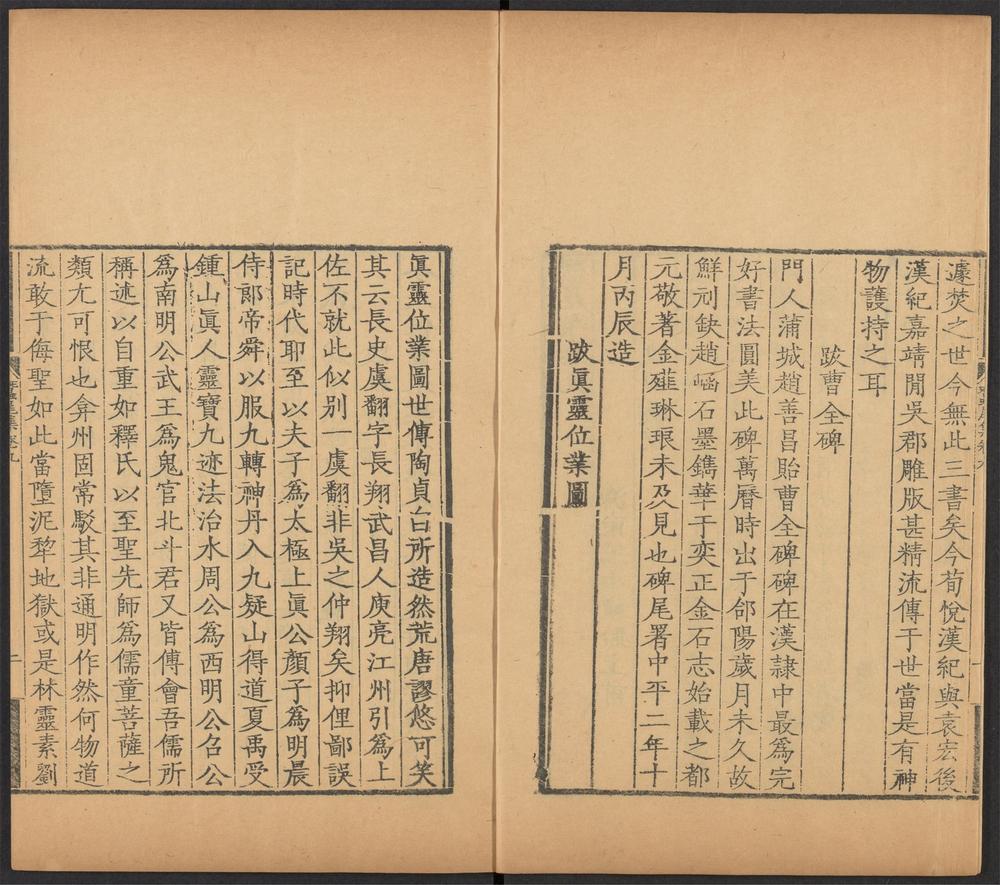 遽焚之世今無此三書矣今荀悅漢紀與袁宏後
漢紀嘉靖閒吳郡雕版甚精流傳于世當是有神
物護持之耳
跋曹全碑
門人蒲城趙善昌貽曹全碑碑在漢隸中最爲完
好書法圓美此碑萬曆時出于郃陽歲月未久故
鮮刓缺趙崡石墨鐫華于奕正金石志始載之都
元敬著金薤琳琅未及見也碑尾署中平二年十
月丙辰造
跋眞靈位業圖
眞靈位業圖世傳陶貞白所造然荒唐謬悠可笑
其云長史虞翻字長翔武昌人庾亮江州引爲上
佐不就此似别一虞翻非吳之仲翔矣抑俚鄙誤
記時代耶至以夫子爲太極上眞公顏子爲明晨
侍郞帝舜以服九轉神丹入九疑山得道夏禹受
鍾山眞人靈寶九迹法治水周公爲西明公召公
爲南明公武王爲鬼官北斗君又皆傅會吾儒所
稱述以自重如釋氏以至聖先師爲儒童菩薩之
類尤可恨也弇州固常駁其非通明作然何物道
流敢于侮聖如此當墮泥犂地獄或是林靈素劉
二